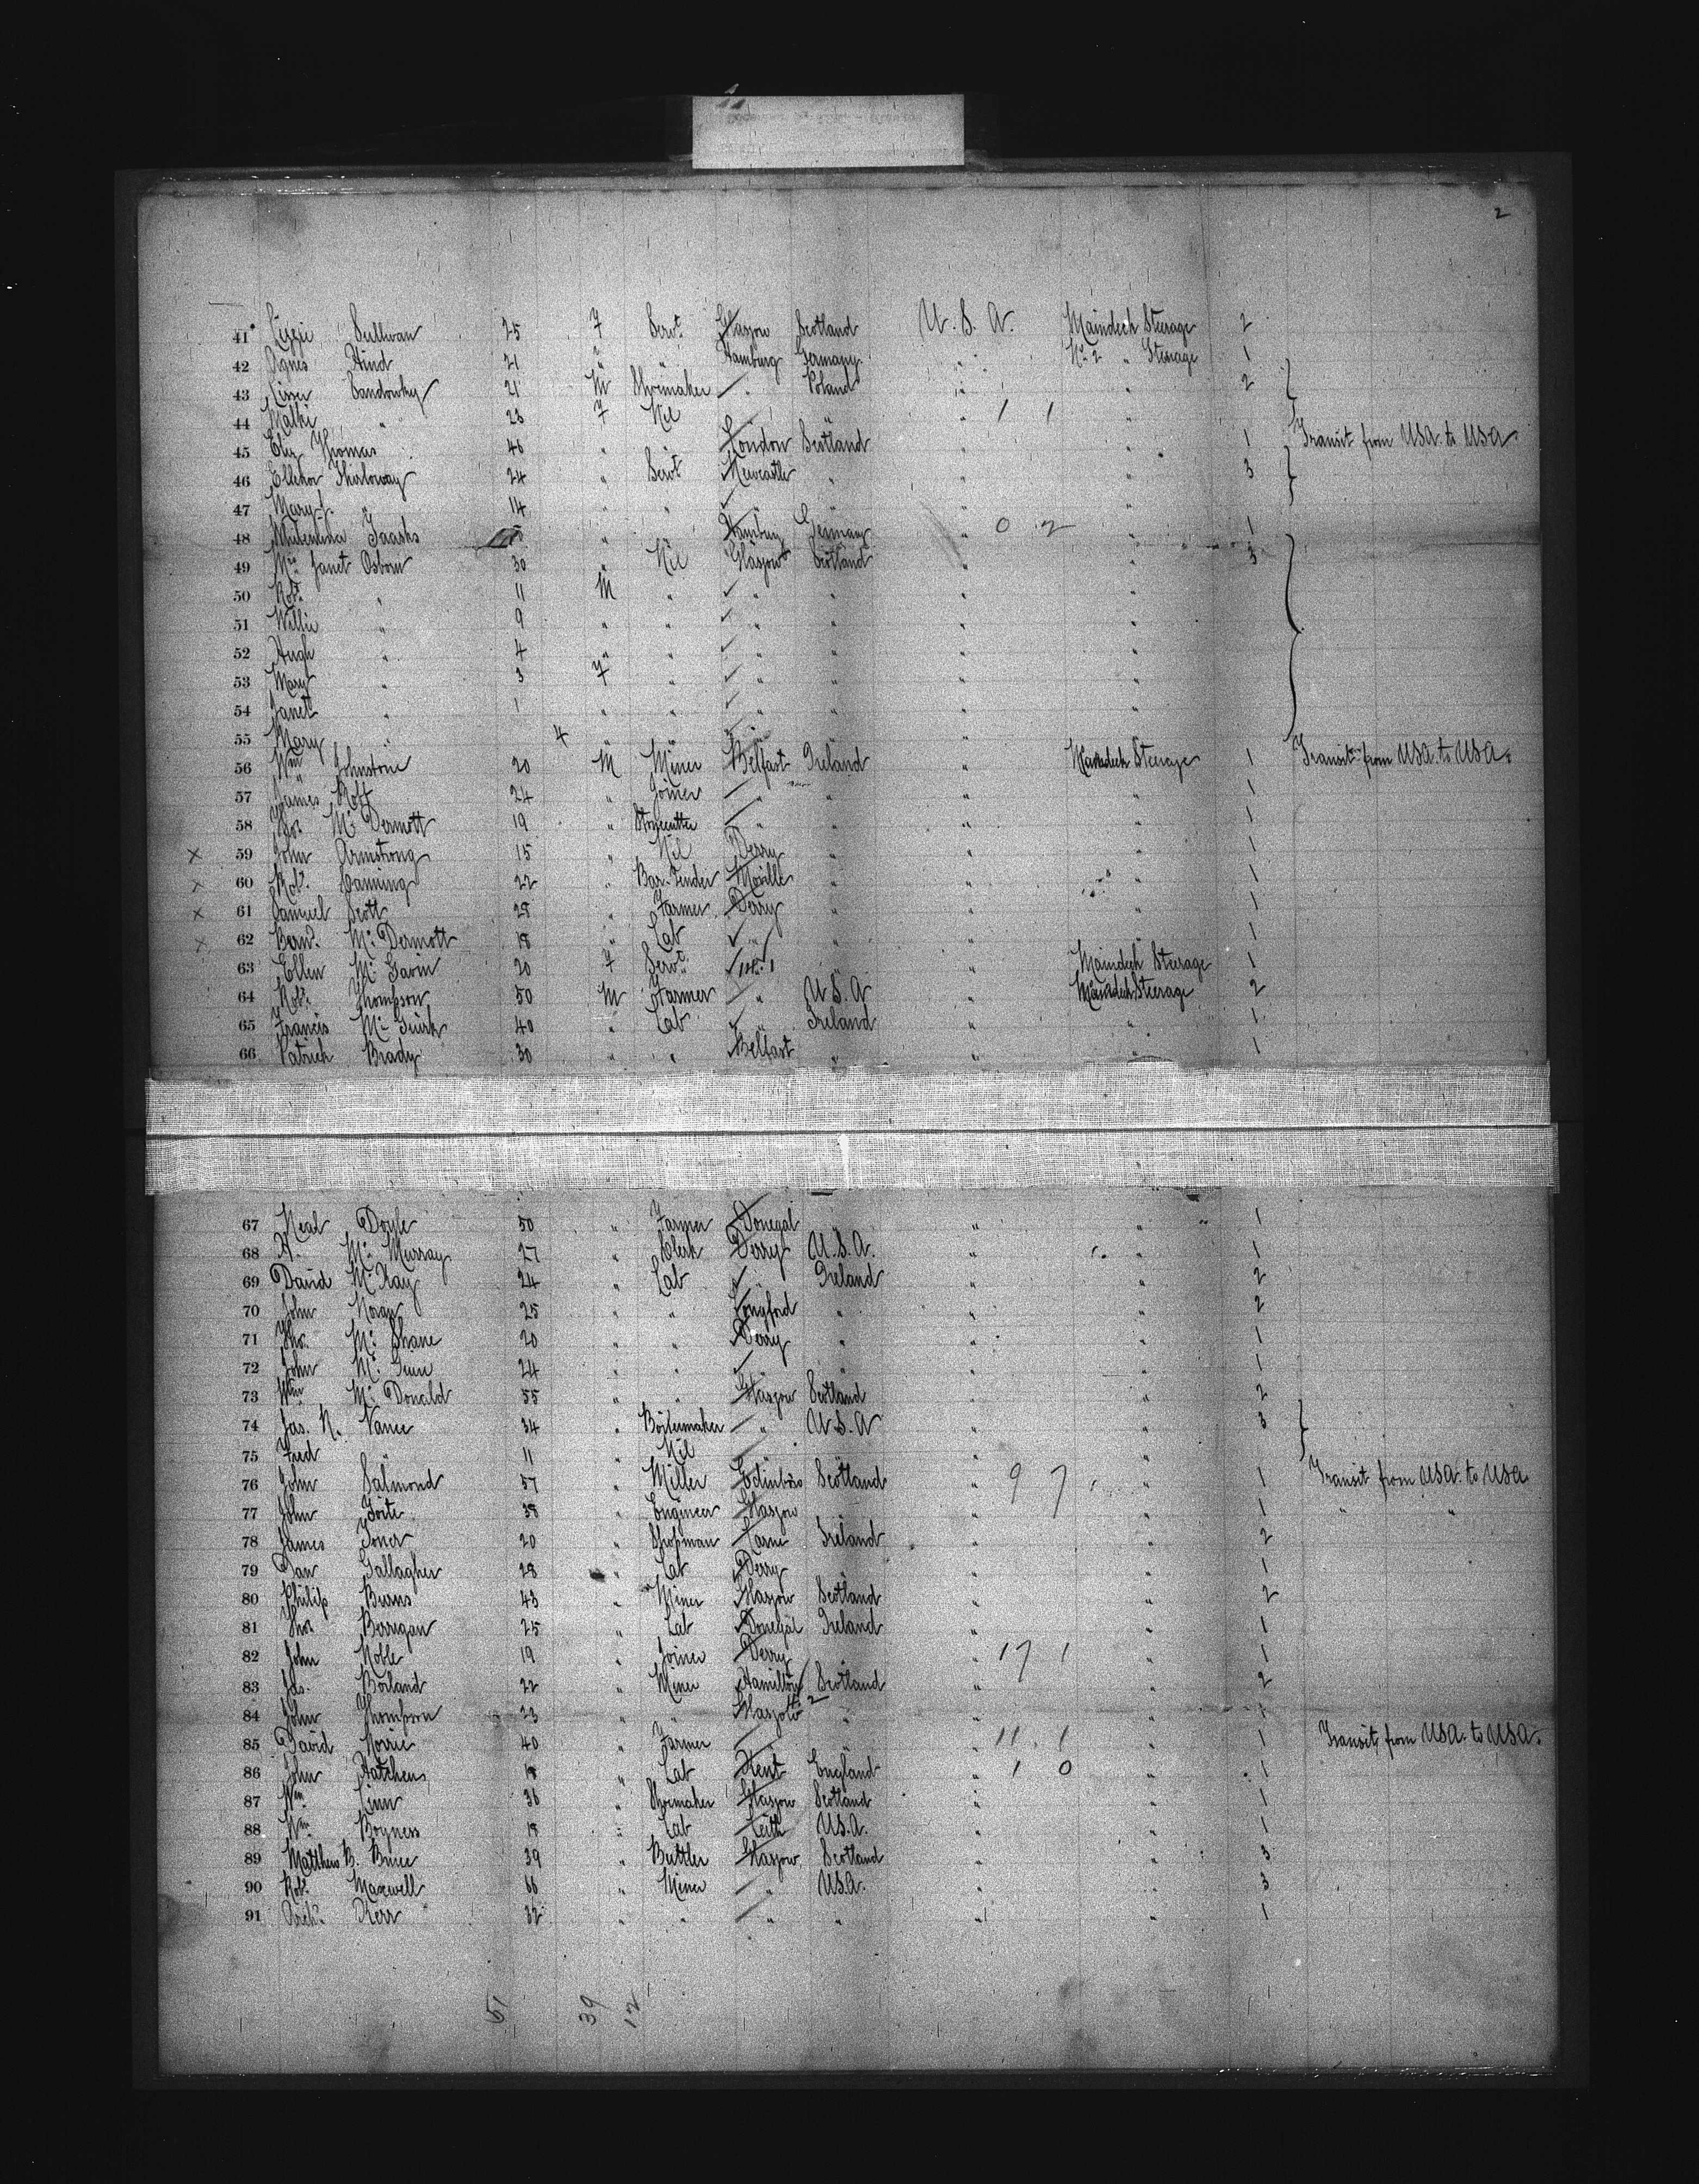 2
41 Lizzie Sullivan 25 F Servt. Glasgow Scotland U.S.A. Maindeck Steerage 2
42 Agnes Hind 21 " " Hamburg Germany " No. 2 " Steerage 1
43 Sandowsky 21 M Shoemaker " Poland " " 2
44 Malki " 23 F Nil " " 1 1 "
45 Eliz Thomas 46 " " London Scotland " " 1 Transit from USA to USA
46 Thirloway 24 " Servt Newcastle " " " 3
47 Mary J. " 14 " " " " " "
48 Isaaks " Hamburg Germany " 0 2 " 1
49 Mrs. Janet Osborn 30 " Nil Glasgow Scotland " " 3
50 Robt. " 11 M " " " " "
51 Willie " 9 " " " " " "
52 Hugh " 4 " " " " " "
53 Mary " 3 F " " " " "
54 Janet " 1 " " " " " "
55 Mary " 4 " " " "
56 Wm Johnstone 20 M Miner Belfast Ireland " Maindeck Steerage 1 Transit from USA to USA.
57 James Roff 24 " Joiner " " " " 1
58 Mc Dermott 19 " Stonecutter " " " " 1
59 John Armstrong 15 " Nil Derry " " " 1
60 Robt. Canning 22 " Bar-Tender Moville " " " 1
61 Samuel Scott 28 " Farmer Derry " " " 1
62 Bernd. Mc Dermott 18 " Lab " " " " 1
63 Ellen Mc Gavin 20 F Servt. " " " Maindeck Steerage 1
64 Robt. Thompson 50 M Farmer " U.S.A " Maindeck Steerage 2
65 Francis Mc Guirk 40 " Lab " Ireland " " 1
66 Patrick Brady 30 " " Belfast " " " 1
67 Neal Doyle 50 " Farmer Donegal " " " 1
68 Mc Murray 27 " Clerk Derry U.S.A. " " 1
69 David Mc Kay 24 " Lab " Ireland " " 2
70 John Moran 25 " " Longford " " " 2
71 Thos. Mc Shane 20 " " Derry " " " 1
72 John Mc 24 " " " " " " 1
73 Wm Mc Donald 55 " " Glasgow Scotland " " 2
74 Jas. N. Vance 34 " Boilermaker " U.S.A " " 3
75 Fred " 11 " Nil " " " "
76 John Salmond 57 " Miller Edinbro Scotland " 9 7 " 1 Transit from USA to USA
77 John 38 " Engineer Glasgow " " " 1 " "
78 James Toner 20 " Shopman Larne Ireland " " 2
79 Dan Gallagher 28 " Lab Derry " " " 1
80 Philip Burns 43 " Miner Glasgow Scotland " " 2
81 Thos Berrigan 25 " Lab Donegal Ireland " " 1
82 John Noble 19 " Joiner Derry " " 17 1 " 1
83 Jas. Borland 22 " Miner Hamilton Scotland " " 2
84 John Thompson 23 " " Glasgow " " " 1
85 David Norrie 40 " Farmer " " " 11 1 " 1 Transit from USA to USA.
86 John Hatchens " Lab Kent England " 1 0 " 1
87 Wm. Linn 36 " Shoemaker Glasgow Scotland " " 1
88 Wm. Boyness 18 " Lab Leith U.S.A. " " 1
89 Matthew B. Bruce 39 " Buttler Glasgow Scotland " " 3
90 Robt. Maxwell " Miner " USA. " " 3
91 Archd. Kerr 32 " " " " " " 1
51 39 12